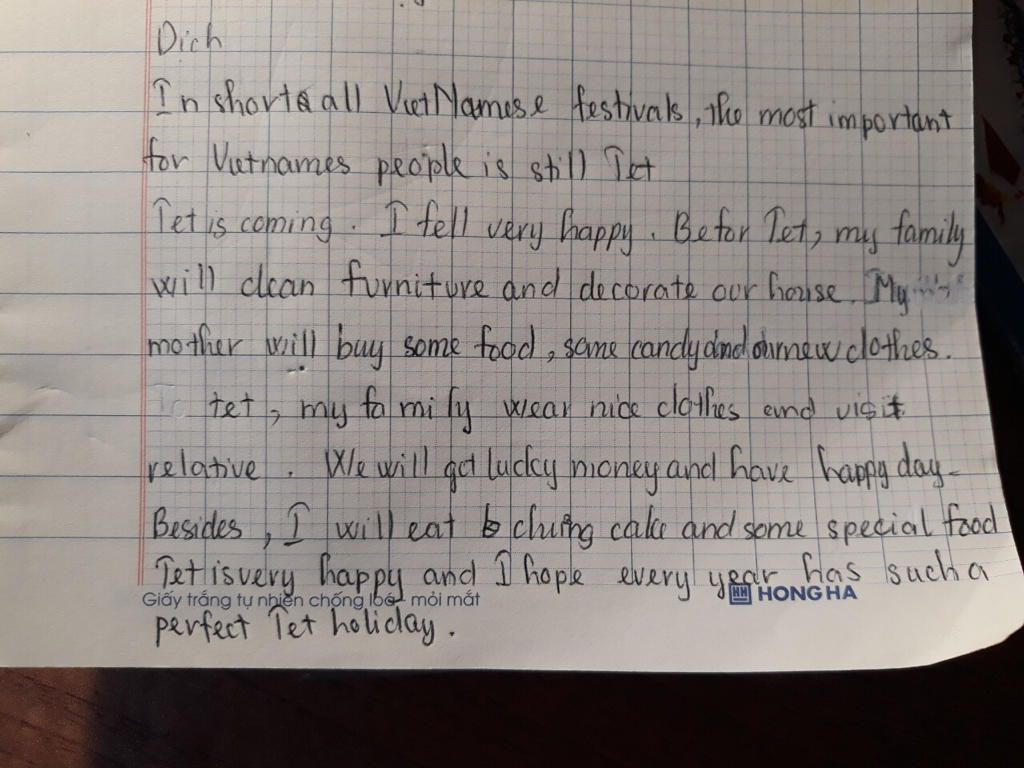 Dich
In short all VietNamese festivals, the most important
for Vietnames people is still Tet
Tet is coming. I fell very happy. Befor Tet, my family
will clean furniture and decorate our house. My
mother will buy some food, some candy and our new clothes.
tet, my family wear nice clothes and visit
relative. We will get lucky money and have happy day.
Besides, I will eat chung cake and some special food
Tet is very happy and I hope every year has such a
Giấy trắng tự nhiên chống lóa - mỏi mắt HH HONG HA
perfect Tet holiday.